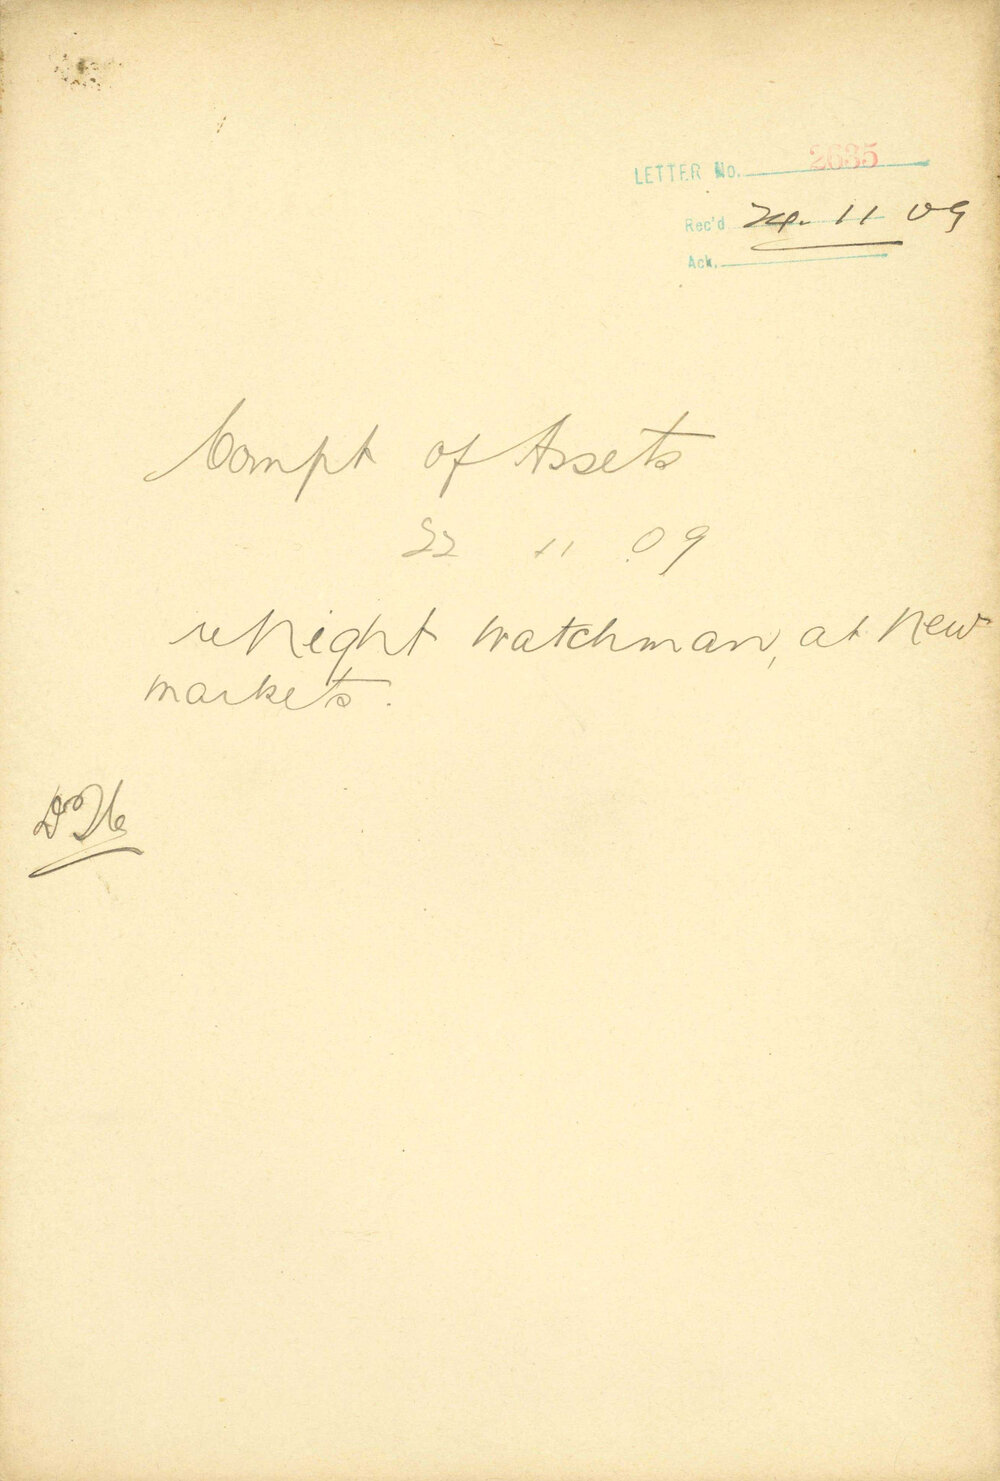 LETTER No. 2635
Rec'd 24. 11 09
Ack.
Compt of Assets
22 11 09
re Night Watchman, at New
markets.